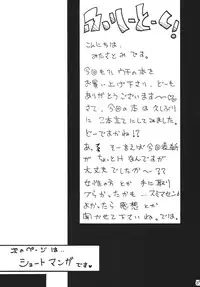 ふりーとーく!
こんにちは、
みたさとみです。
今回もウチの本を
お買い上げ下さり、どーも
ありがとうございます〜
さて、今回の本は久しぶりに
二本立てにしてみました。
どーですかね!?
あ、そーいえば今回表紙
がちょっとHなんですが
大丈夫でしたか〜??
女性の方とか手に取り
づらかったかも…スミマセン
よかったら感想とか
聞かせて下さいね。では。
次のページは…
ショートマンガです♥